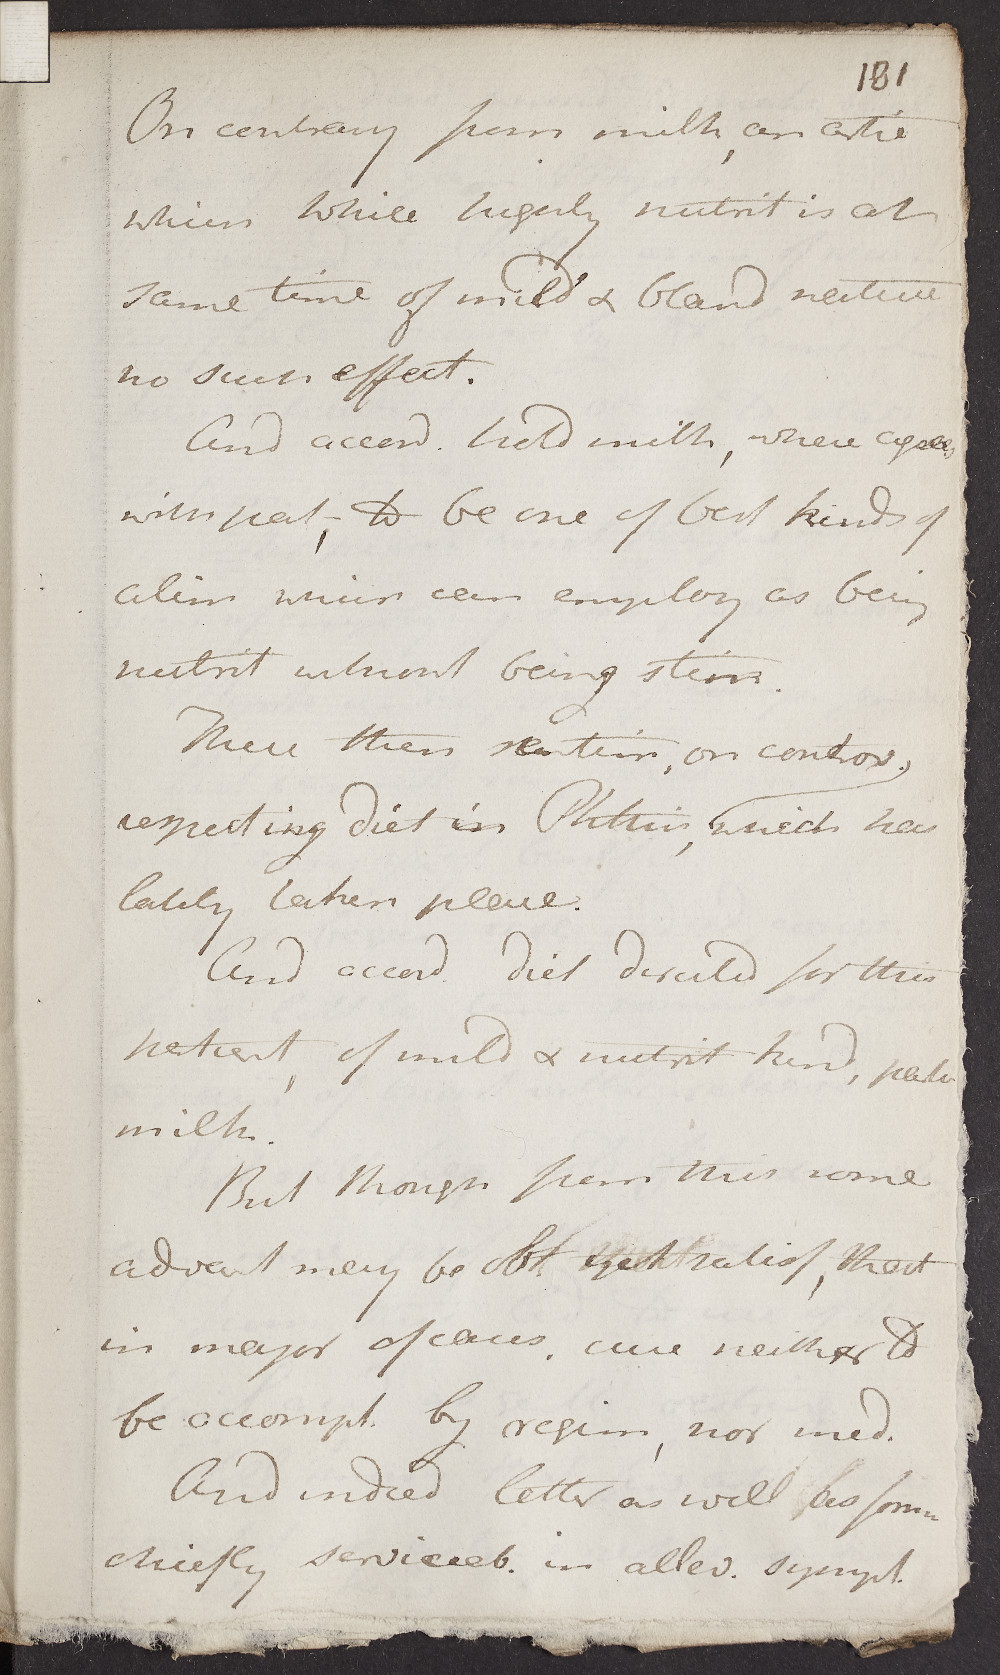 181
On contrary from milk, an artic
which while highly nutrit is at
same time of mild & bland nature
no such effect.
And accord. hold milk, where agrees
with pat, to be one of best kinds of
alim which can employ as being
nutrit without being stim.
These then sentim, on controv,
respecting diet in Phthis, which has
lately taken place.
And accord diet directed for this
patient, of mild & nutrit kind, partic
milk.
But though from this some
advant may be obt satisf, that
in major of cases, cure neither to
be accompt. by regim, nor med.
And indeed latter as well as form
chiefly serviceab. in allev. sympt.